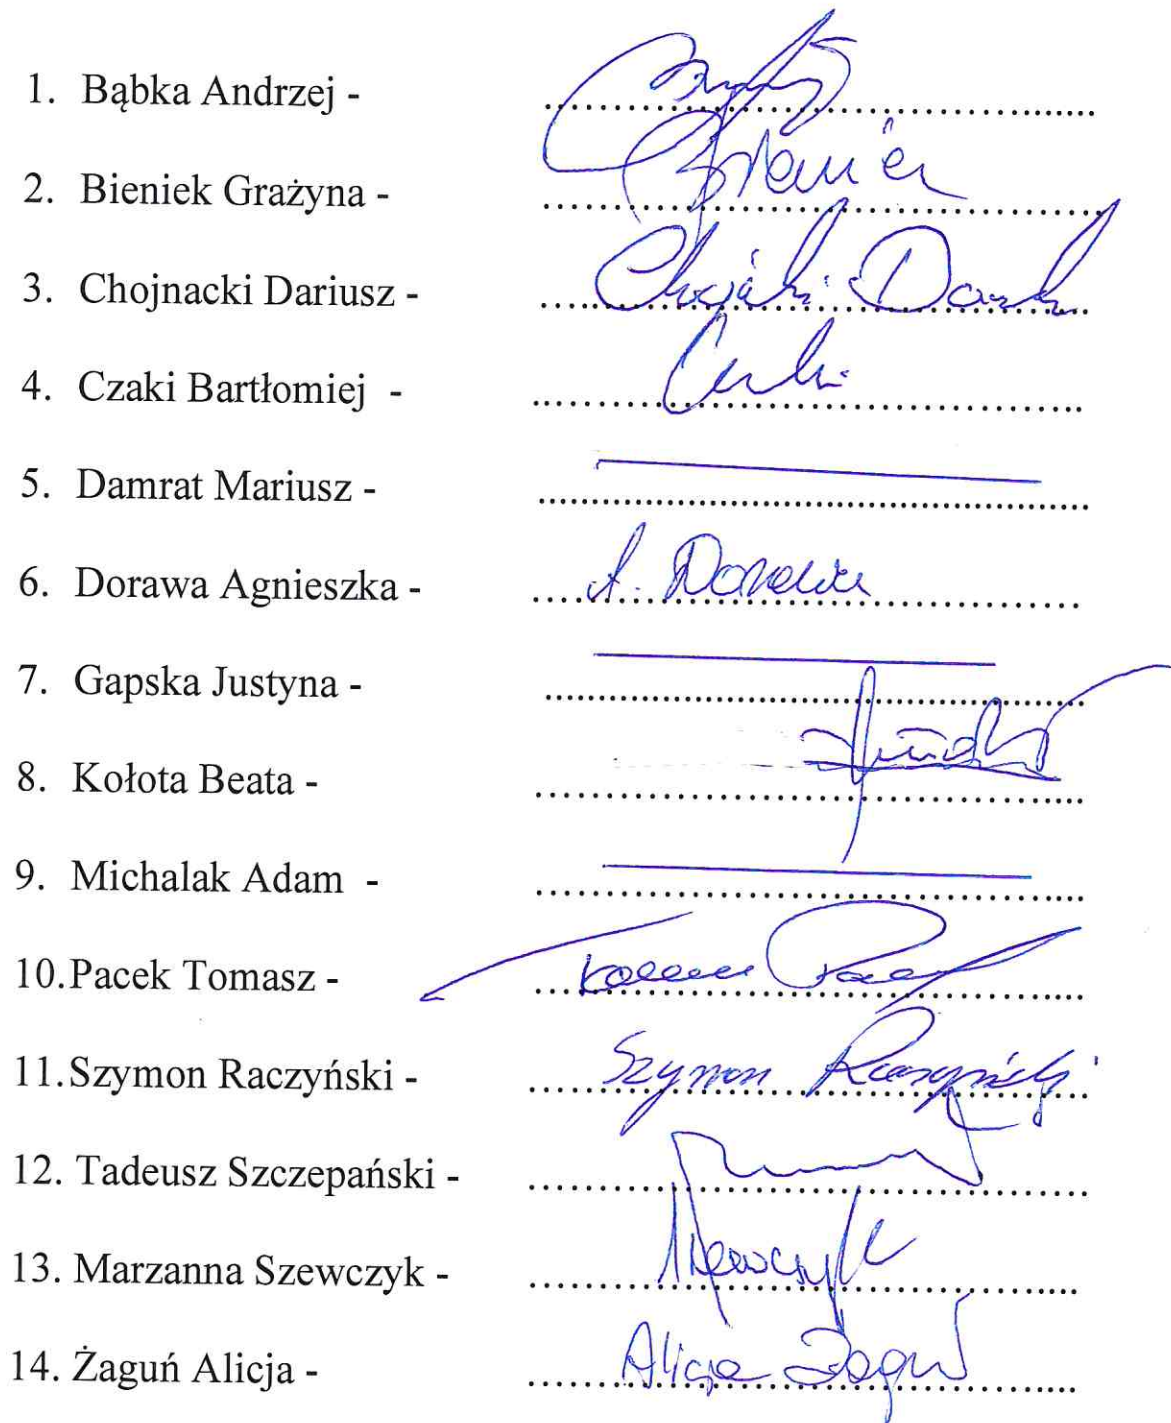 1. Bąbka Andrzej - ..............................
2. Bieniek Grażyna - ..............................
3. Chojnacki Dariusz - ..............................
4. Czaki Bartłomiej - ..............................
5. Damrat Mariusz - ..............................
6. Dorawa Agnieszka - .............................. A. Dorawa
7. Gapska Justyna - ..............................
8. Kołota Beata - ..............................
9. Michalak Adam - ..............................
10.Pacek Tomasz - ..............................
11.Szymon Raczyński - .............................. Szymon Raczyński
12. Tadeusz Szczepański - ..............................
13. Marzanna Szewczyk - ..............................
14. Żaguń Alicja - .............................. Alicja Żaguń